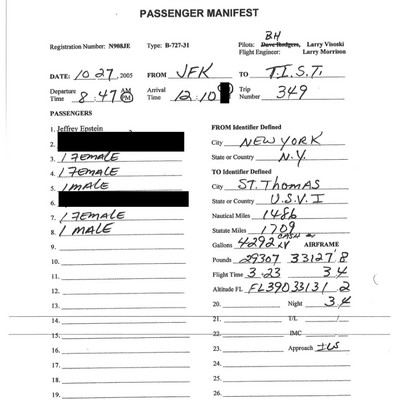 PASSENGER MANIFEST
BH
Registration Number: N908JE Type: B-727-31 Pilots: Dave Rodgers, Larry Visoski
Flight Engineer: Larry Morrison
DATE: 10 27, 2005 FROM JFK TO T.I.S.T.
Departure Time 8:47 AM PM Arrival Time 12:10 Trip Number 349
PASSENGERS
1. Jeffrey Epstein
2.
3. 1 FEMALE
4. 1 FEMALE
5. 1 MALE
6.
7. 1 FEMALE
8. 1 MALE
9.
10.
11.
12.
13.
14.
15.
16.
17.
18.
19.
FROM Identifier Defined
City NEW YORK
State or Country N.Y.
TO Identifier Defined
City ST. THOMAS
State or Country U.S.V.I
Nautical Miles 1486
Statute Miles 1709
Gallons 4292 AIRFRAME
Pounds 29307 33127 8
Flight Time 3-23 3 4
Altitude FL FL390 33131 2
20. Night 3.4
21. I/L /
22. IMC /
23. Approach ILS
24.
25.
26.